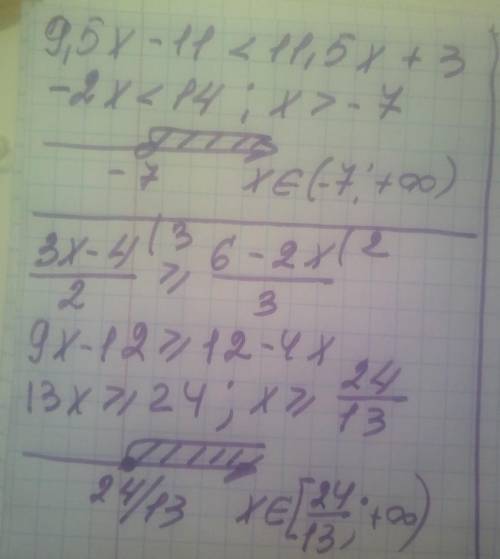 9,5x - 11 < 11,5x + 3
-2x < 14 ; x > -7
-7 x∈(-7; +∞)
(3x-4)/2 (3 ≥ (6-2x)/3 (2
9x-12 ≥ 12-4x
13x ≥ 24 ; x ≥ 24/13
24/13 x∈[24/13; +∞)